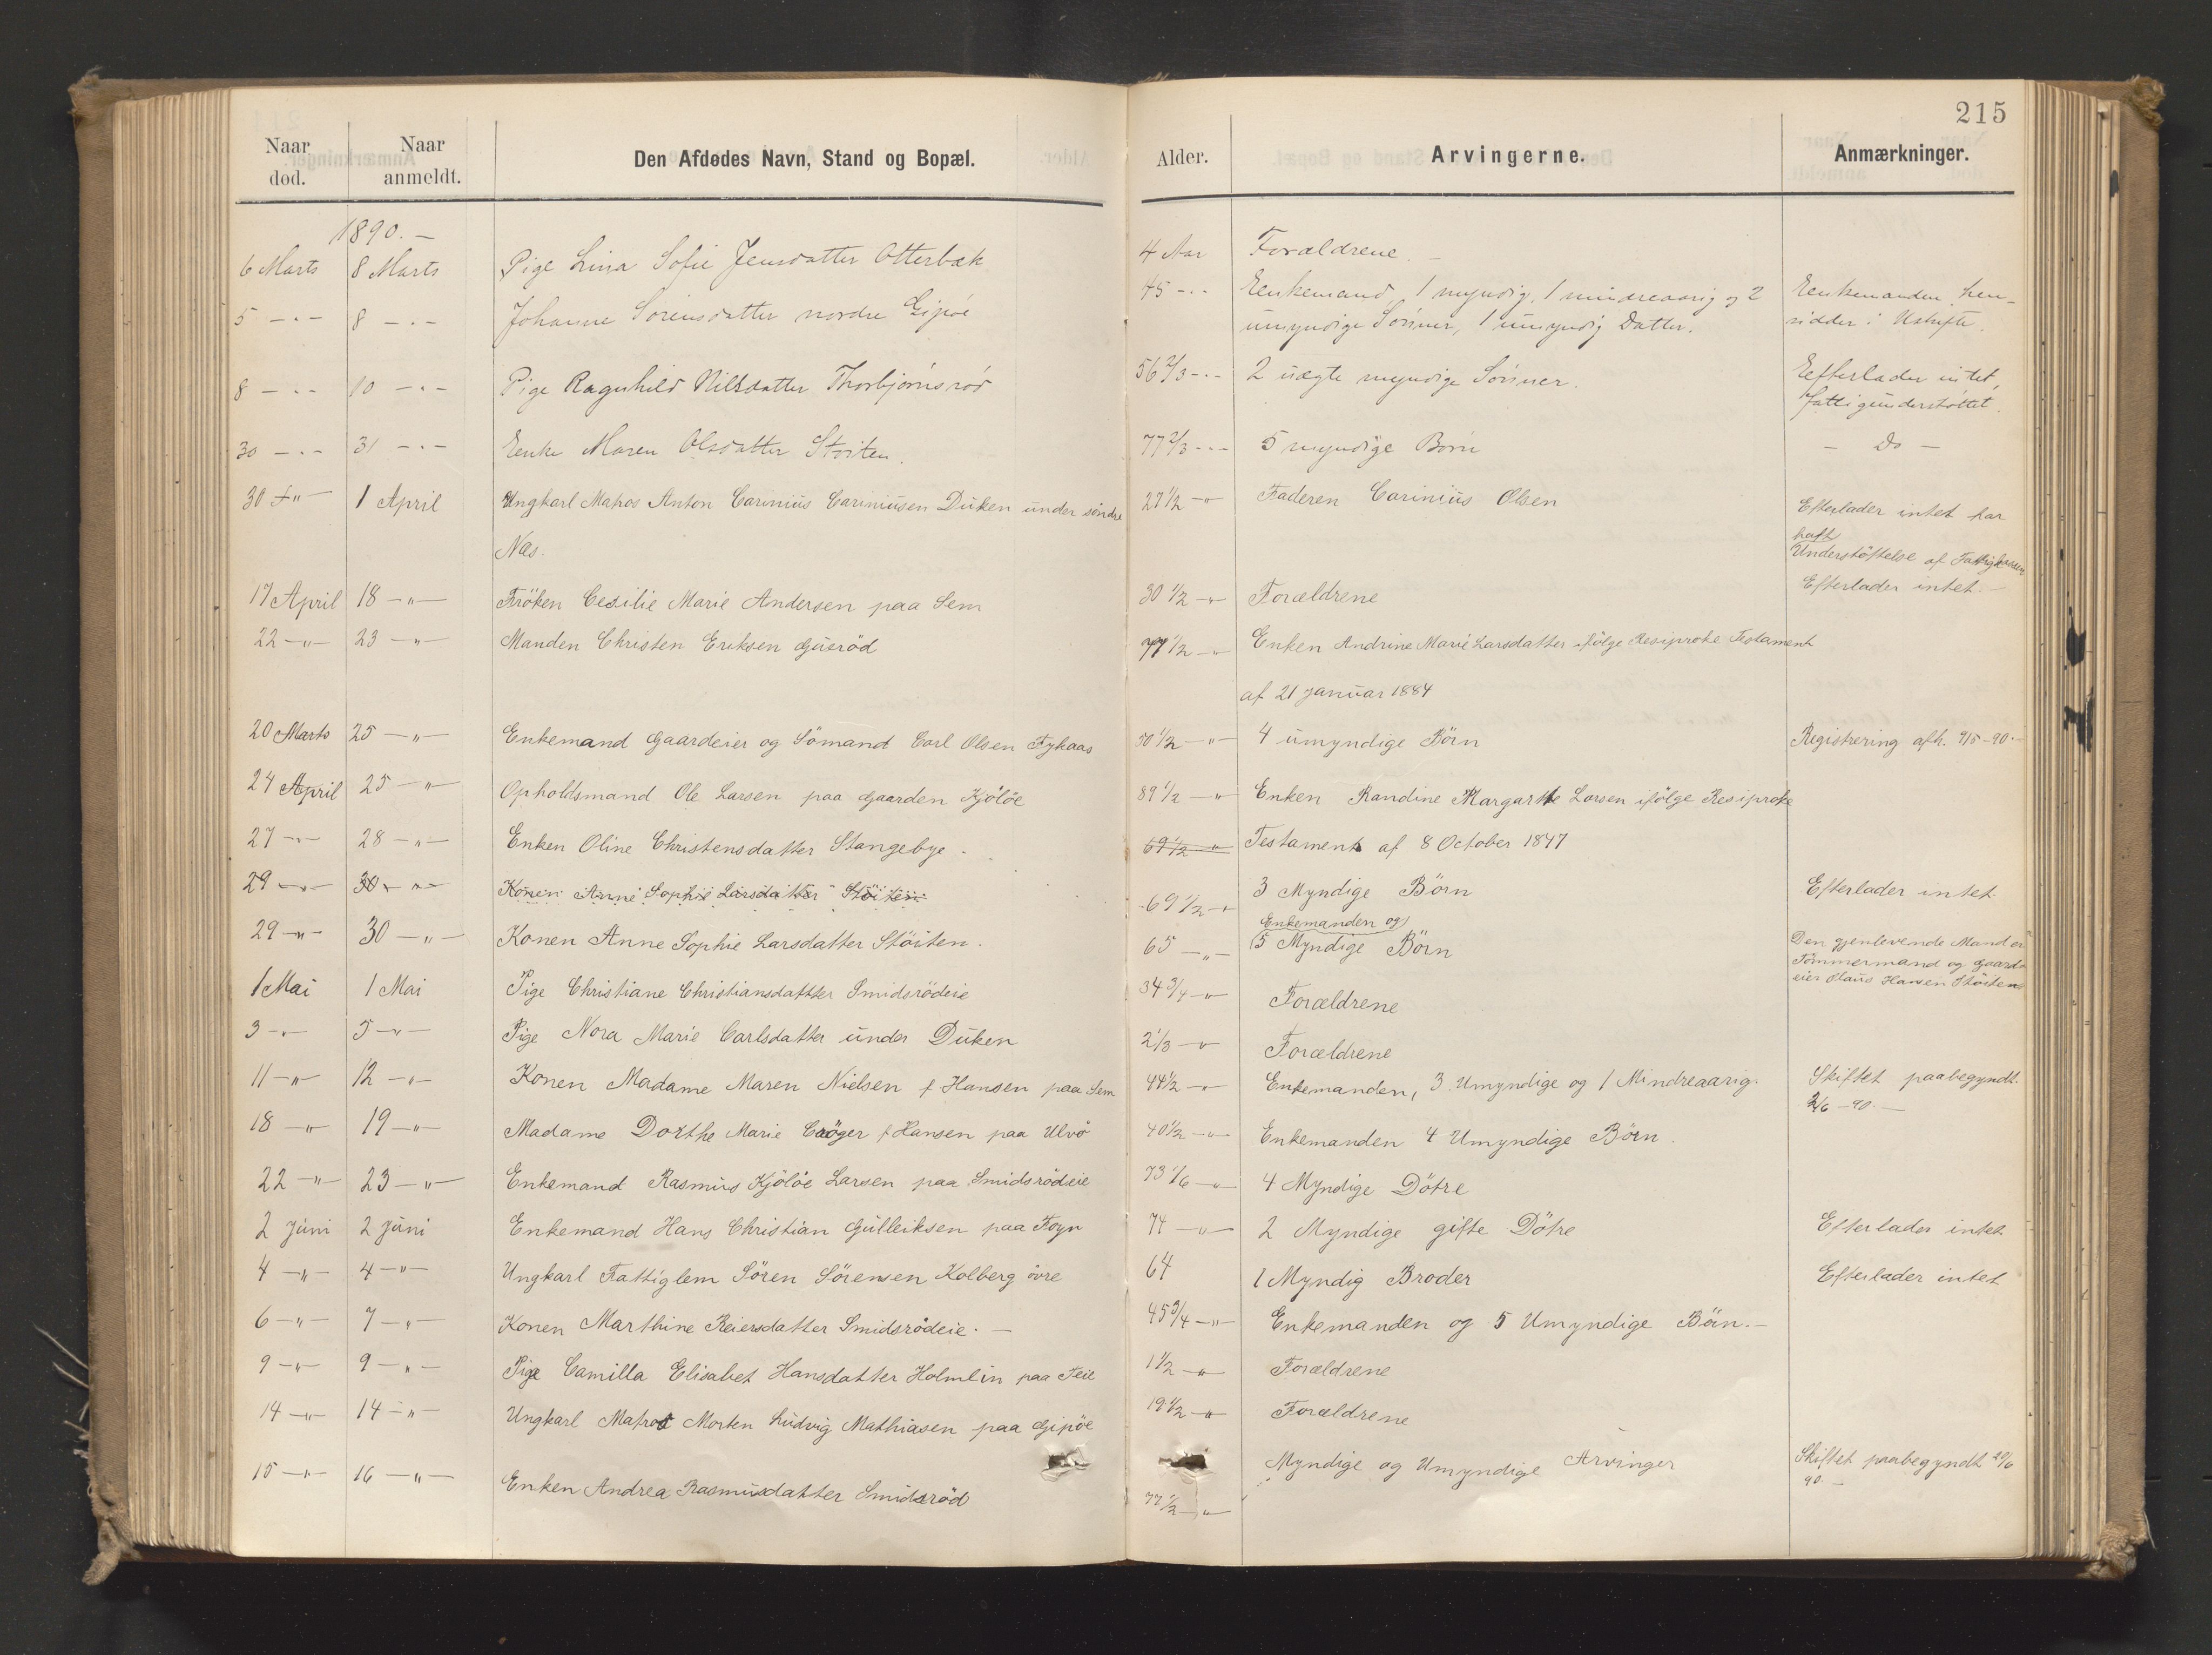 215
Naar død. Naar anmeldt. Den Afdødes Navn, Stand og Bopæl. Alder. Arvingerne. Anmærkninger.
1890. —
6 Marts 8 Marts Pige Lina Sofie Jensdatter Otterbæk 4 Aar Forældrene. —
5 — " — 8 — " — Johanne Sörensdatter nordre Gipöe 45 — " — Enkemand, 1 myndig, 1 mindreaarig og 2 Enkemanden hen-
umyndige Sönner, 1 umyndig Datter. sidder i Uskifte.
8 — " — 10 — " — Pige Ragnhild Nilsdatter Thorbjörnsröd 56 2/3 — " — 2 uægte myndige Sönner. Efterlader intet,
fattigunderstöttet.
30 — " — 31 — " — Enke Maren Olsdatter Stöiten. 77 2/3 — " — 5 myndige Börn — Do —
30 — " — 1 April Ungkarl Matros Anton Carinius Cariniusen Duken under söndre 27 1/2 — " Faderen Carinius Olsen Efterlader intet har
Næs. haft
Understöttelse af Fattigkassen
17 April 18 — " — Fröken Cesilie Marie Andersen paa Sem 30 1/2 — " Forældrene Efterlader intet. —
22 — " — 23 — " — Manden Christen Eriksen Gusröd 77 1/2 — " Enken Andrine Marie Larsdatter ifölge Resiproke Testament
af 21 Januar 1884
20 Marts 25 — " — Enkemand Gaardeier og Sömand Carl Olsen Fykaas 50 1/2 — " — 4 umyndige Börn Registrering afh. 9/5 - 90. —
24 April 25 — " — Opholdsmand Ole Larsen paa Gaarden Kjölöe 89 1/2 — " Enken Randine Margarthe Larsen ifölge Resiproke
27 — " — 28 — " — Enken Oline Christensdatter Stangebye. 69 1/2 — " Testament af 8 October 1847
29 — " — 30 — " — Konen Anne Sophie Larsdatter Stöiten 69 1/2 — " 3 Myndige Börn Efterlader intet.
Enkemanden og
29 — " — 30 — " — Konen Anne Sophie Larsdatter Stöiten. 65 — " — 5 Myndige Börn Den gjenlevende Mand er
Tömmermand og Gaard-
eier Olaus Hansen Stöiten
1 Mai 1 Mai Pige Christiane Christiansdattter Smidsrödeie 34 3/4 — " Forældrene
3 — " 5 — " — Pige Nora Marie Carlsdatter under Duken 2 1/3 — " Forældrene
11 — " — 12 — " — Konen Madame Maren Nielsen f Hansen paa Sem 44 1/2 — " Enkemanden, 3 Umyndige og 1 Mindreaarig. Skiftet paabegyndt.
2/6 - 90. —
18 — " — 19 — " — Madame Dorthe Marie Cröger f Hansen paa Ulvö 40 1/2 — " Enkemanden 4 Umyndige Börn.
22 — " — 23 — " — Enkemand Rasmus Kjölöe Larsen paa Smidsrödeie 73 1/6 — " 4 Myndige Dötre
2 Juni 2 Juni Enkemand Hans Christian Gulleiksen paa Foyn 74 — " — 2 Myndige gifte Dötre Efterlader intet
4 — " — 4 — " — Ungkarl Fattiglem Sören Sörensen Kolberg övre 64 1 Myndig Broder Efterlader intet
6 — " — 7 — " — Konen Marthine Reiersdatter Smidsrödeie. — 45 3/4 — " — Enkemanden og 5 Umyndige Börn. —
9 — " — 9 — " — Pige Camilla Elisabet Hansdatter Holmlin paa Feie 1 1/2 — " Forældrene
14 — " — 14 — " — Ungkarl Matros Morten Ludvig Mathiasen paa Gipöe 19 1/2 — " Forældrene
15 — " — 16 — " — Enken Andrea Rasmusdatter Smidsröd 77 1/2 — " Myndige og Umyndige Arvinger Skiftet paabegyndt 20/6
90. —